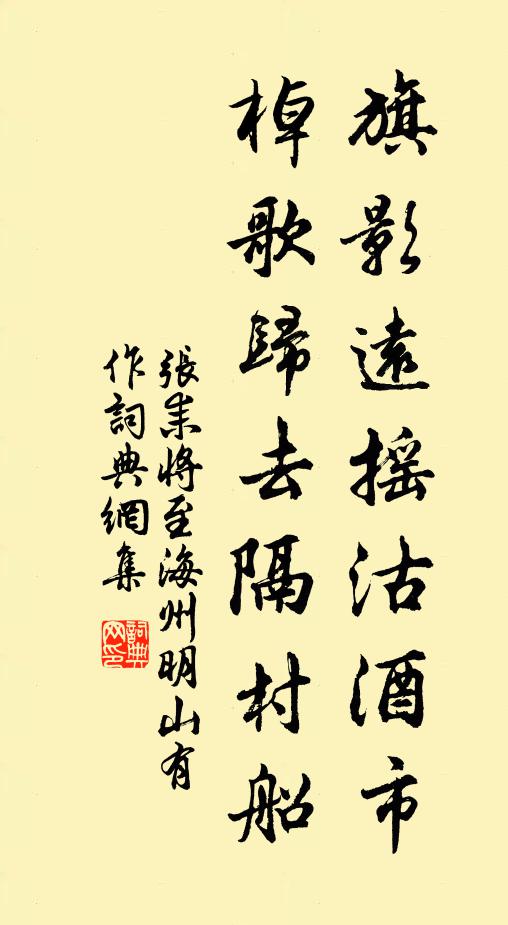 旗影遠摇沽酒市
棹歌歸去隔村船
張耒將至海州明山有
作詞典網集
詞典網印